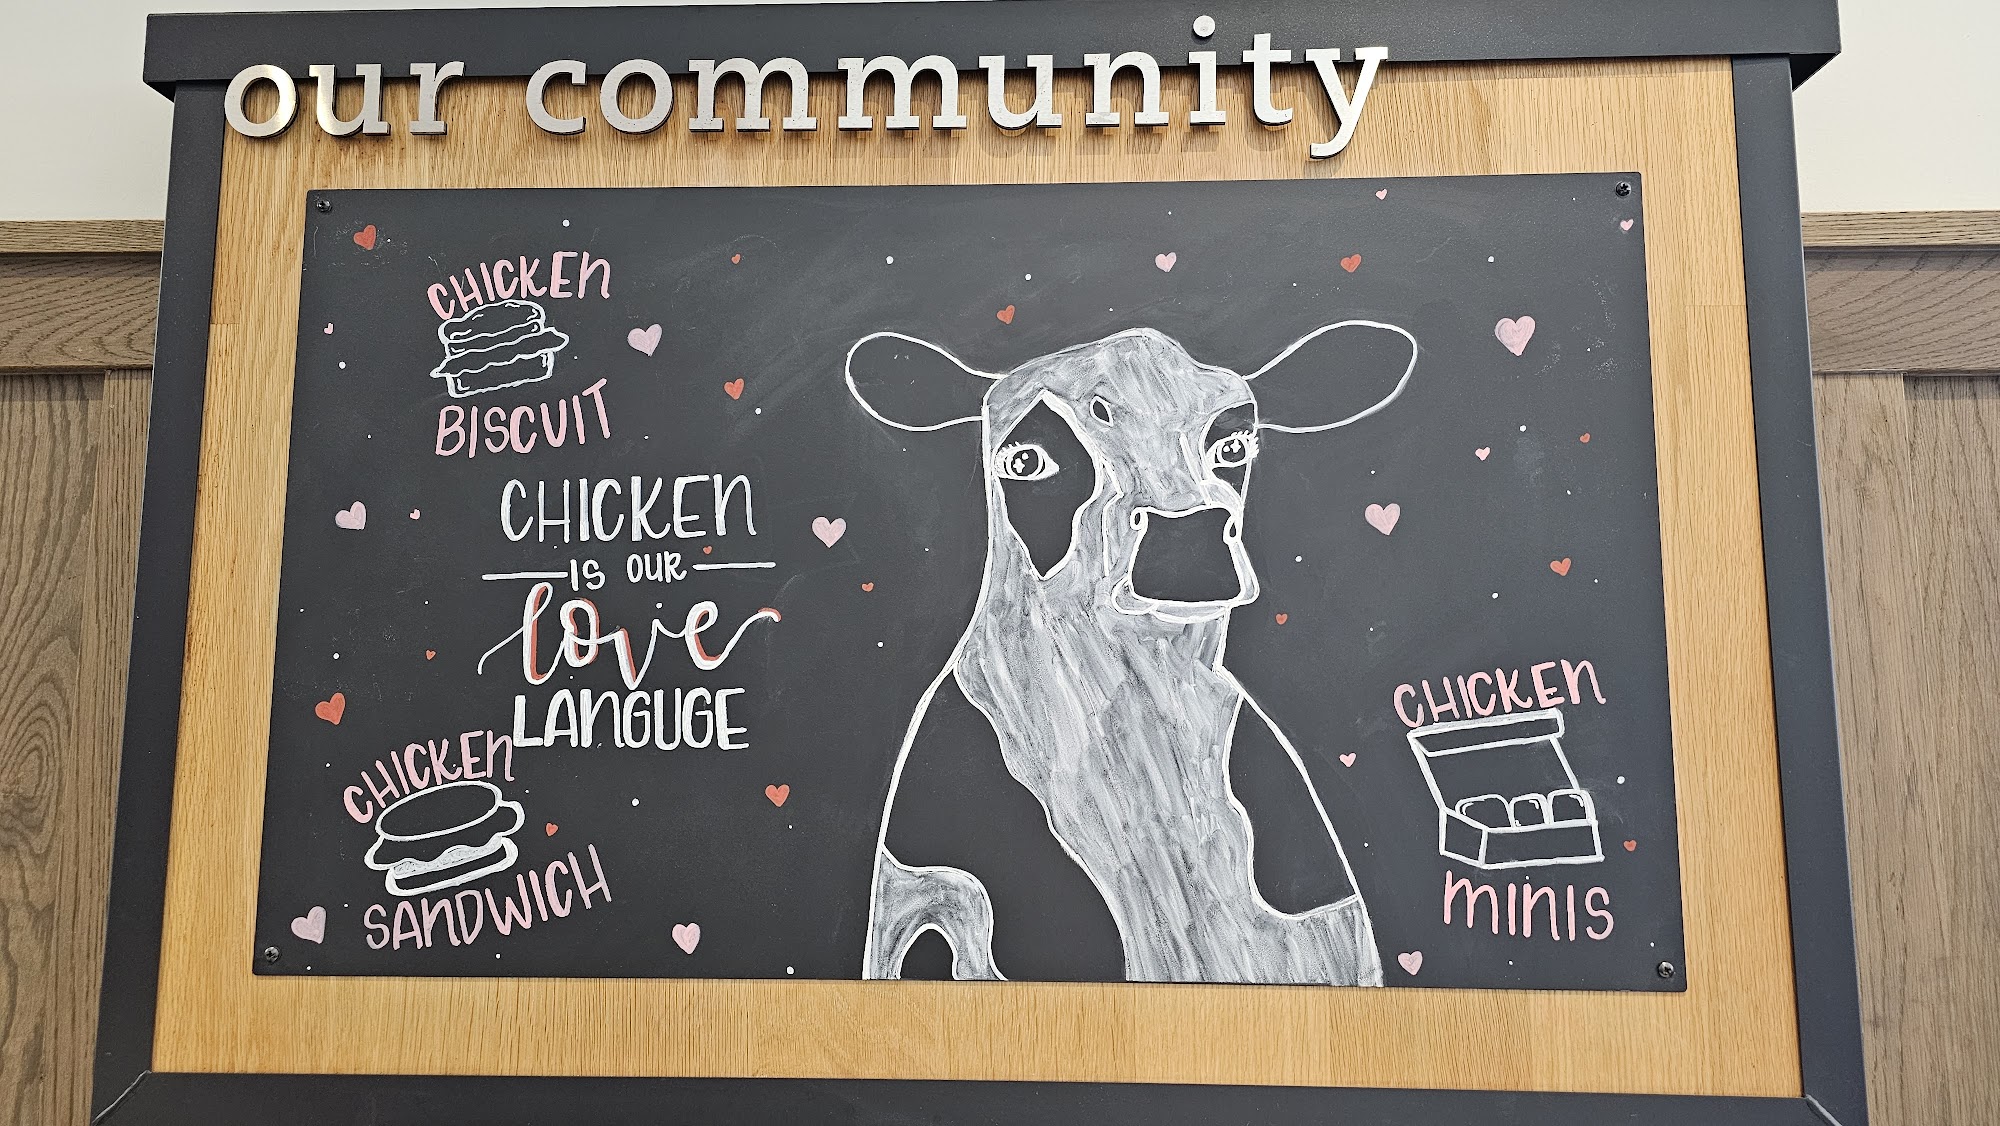 our community
CHICKEN
BISCUIT
CHICKEN
IS OUR
love
LANGUGE
CHICKEN
SANDWICH
CHICKEN
MINIS